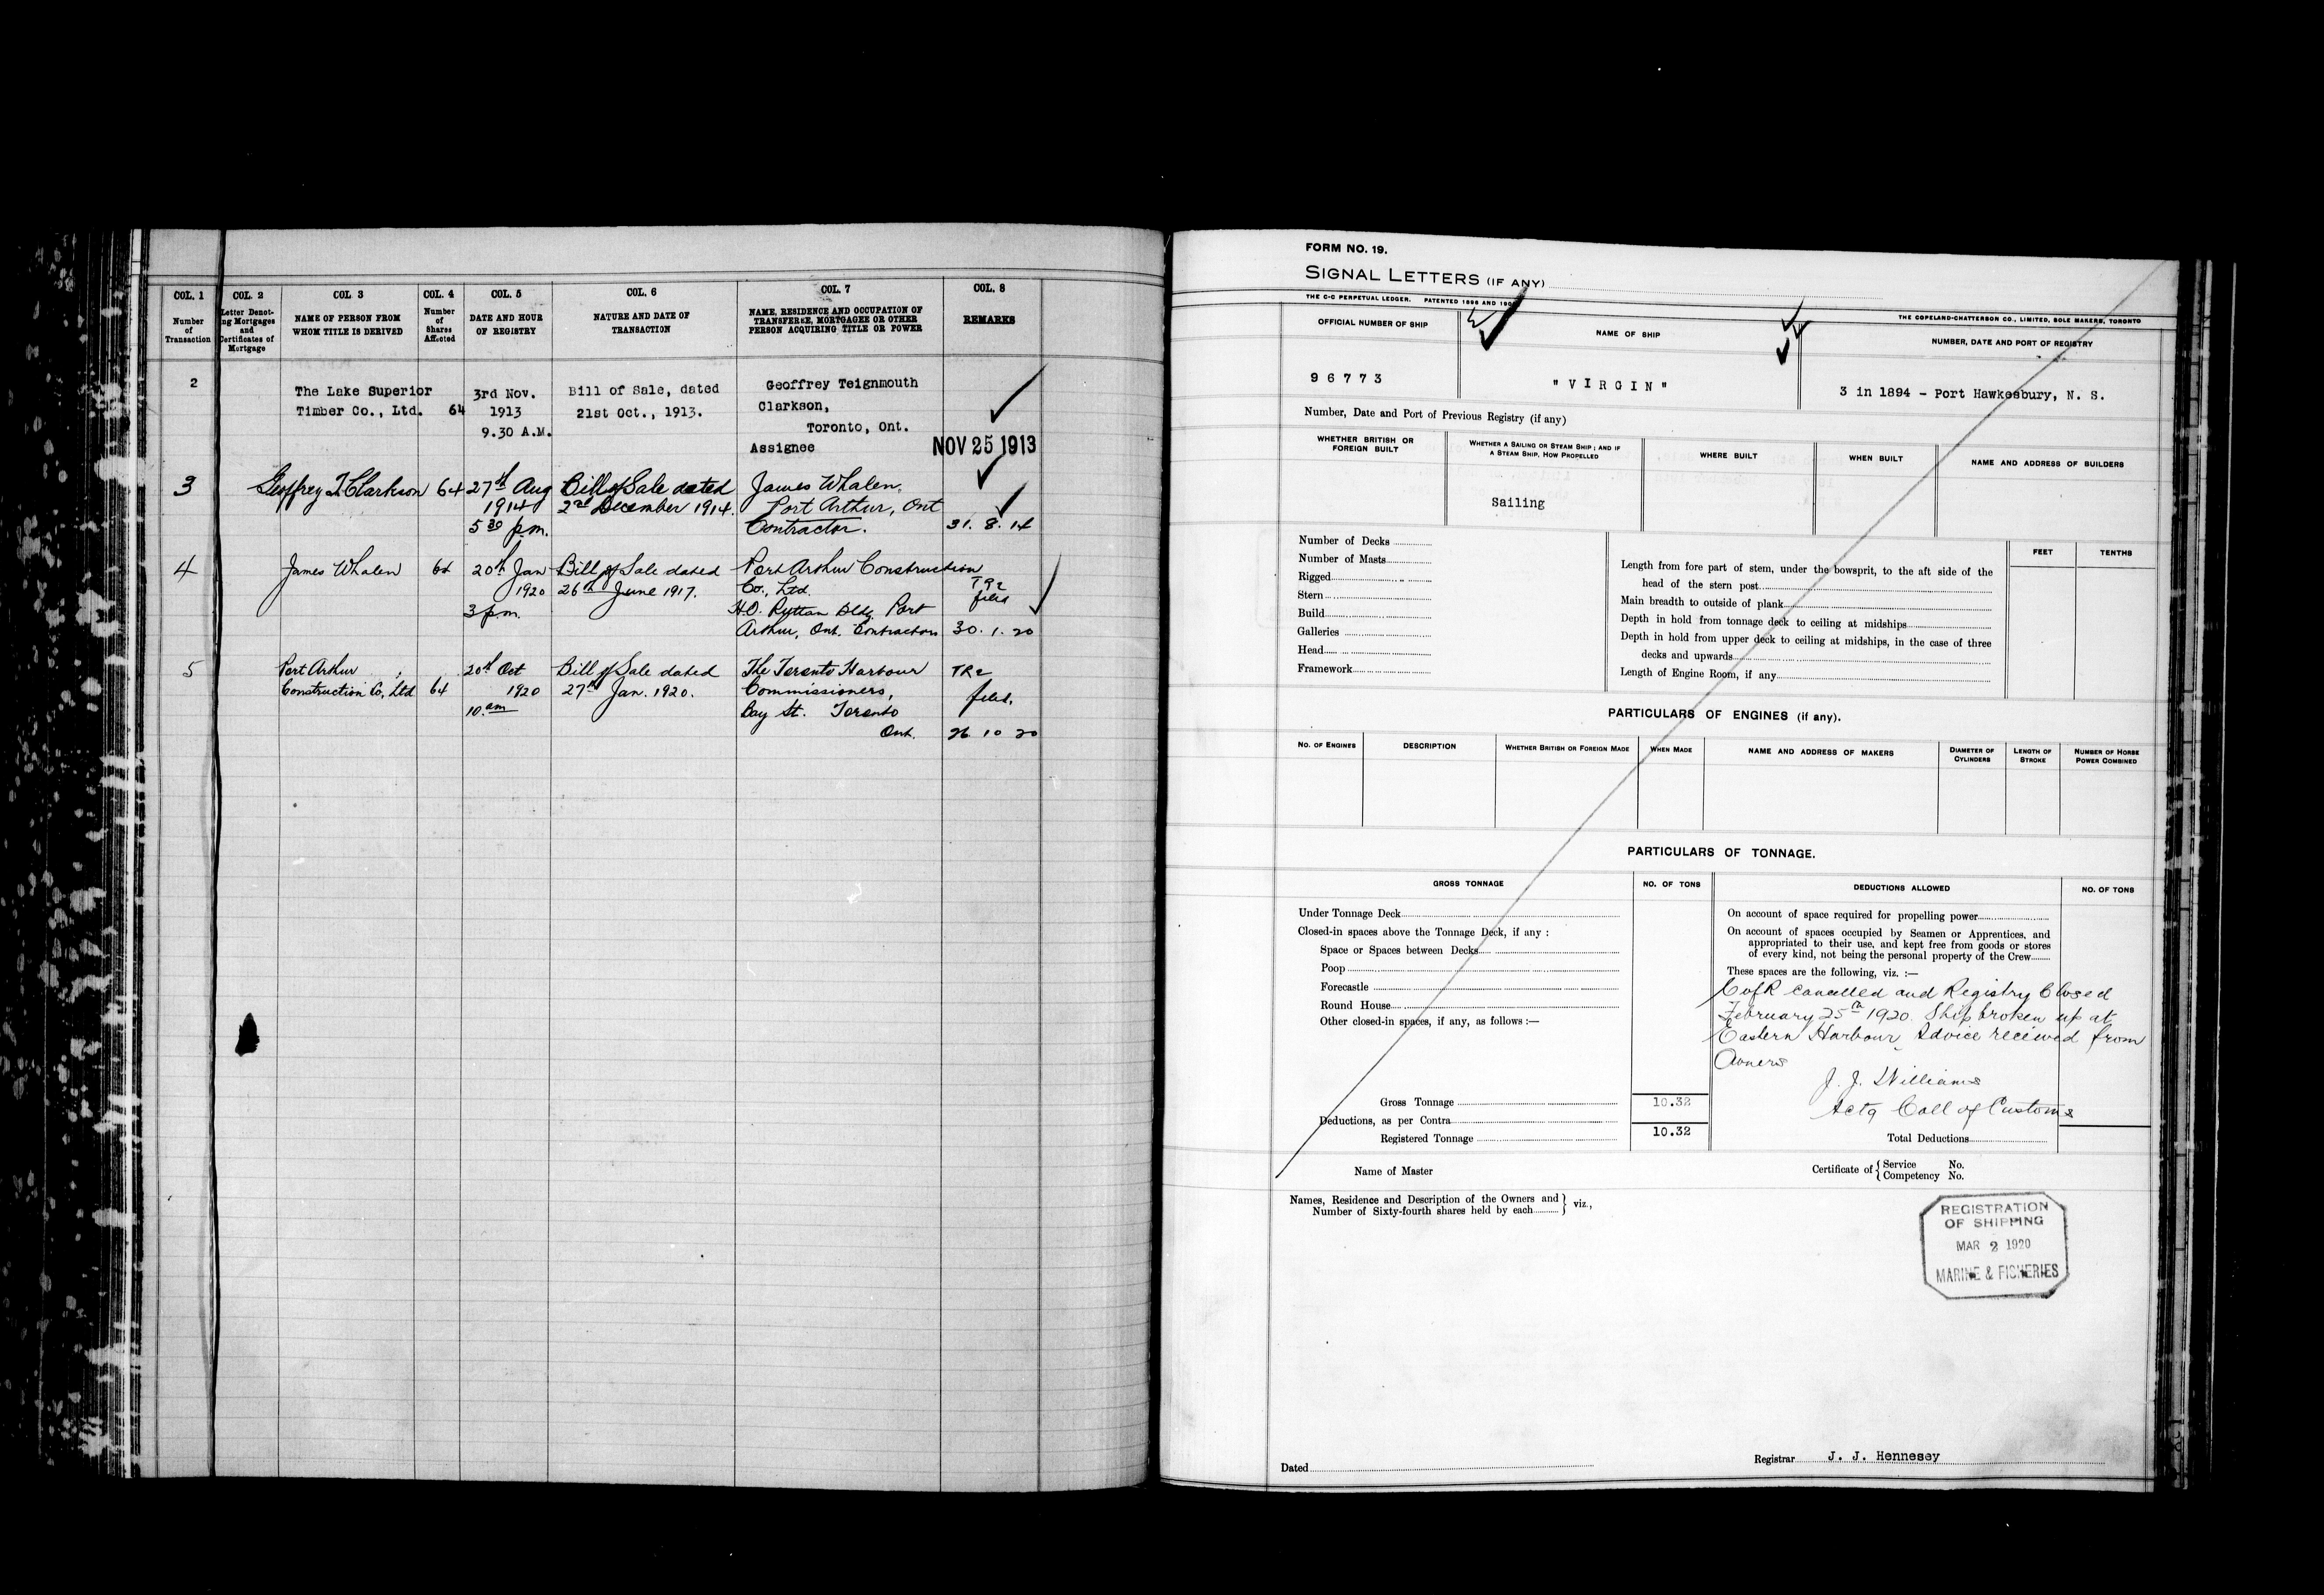 COL. 1 COL. 2 COL 3 COL. 4 COL. 5 COL. 6 COL. 7 COL. 8
Number of Transaction
Letter Denoting Mortgages and Certificates of Mortgage
NAME OF PERSON FROM WHOM TITLE IS DERIVED
Number of Shares Affected
DATE AND HOUR OF REGISTRY
NATURE AND DATE OF TRANSACTION
NAME, RESIDENCE AND OCCUPATION OF TRANSFEREE, MORTGAGEE OR OTHER PERSON ACQUIRING TITLE OR POWER
REMARKS
2 The Lake Superior 3rd Nov. Bill of Sale, dated Geoffrey Teignmouth
Timber Co., Ltd. 64 1913 21st Oct., 1913. Clarkson,
9.30 A.M. Toronto, Ont.
Assignee NOV 25 1913
3 Geoffrey T. Clarkson 64 27th Aug Bill of Sale dated James Whalen,
1914 2nd December 1914. Port Arthur, Ont
5 30 p.m. Contractor. 31. 8. 14
4 James Whalen 64 20th Jan Bill of Sale dated Port Arthur Construction
1920 26th June 1917. Co., Ltd. TR2 filed
3 p.m. H.O. Ryttan Bldg. Port
Arthur, Ont. Contractors 30. 1. 20
5 Port Arthur 20th Oct Bill of Sale dated The Toronto Harbour TR2
Construction Co, Ltd 64 1920 27th Jan. 1920. Commissioners, filed.
10. am Bay St. Toronto
Ont. 26 10 20
FORM NO. 19.
SIGNAL LETTERS (IF ANY)
THE C-C PERPETUAL LEDGER. PATENTED 1896 AND
THE COPELAND-CHATTERSON CO., LIMITED, SOLE MAKERS, TORONTO
OFFICIAL NUMBER OF SHIP NAME OF SHIP NUMBER, DATE AND PORT OF REGISTRY
96773 "VIRGIN" 3 in 1894 - Port Hawkesbury, N. S.
Number, Date and Port of Previous Registry (if any)
WHETHER BRITISH OR FOREIGN BUILT
WHETHER A SAILING OR STEAM SHIP; AND IF A STEAM SHIP, HOW PROPELLED
WHERE BUILT WHEN BUILT NAME AND ADDRESS OF BUILDERS
Sailing
Number of Decks
Number of Masts
Rigged
Stern
Build
Galleries
Head
Framework
FEET TENTHS
Length from fore part of stem, under the bowsprit, to the aft side of the
head of the stern post
Main breadth to outside of plank
Depth in hold from tonnage deck to ceiling at midships
Depth in hold from upper deck to ceiling at midships, in the case of three
decks and upwards
Length of Engine Room, if any
PARTICULARS OF ENGINES (if any).
NO. OF ENGINES DESCRIPTION WHETHER BRITISH OR FOREIGN MADE WHEN MADE NAME AND ADDRESS OF MAKERS DIAMETER OF CYLINDERS LENGTH OF STROKE NUMBER OF HORSE POWER COMBINED
PARTICULARS OF TONNAGE.
GROSS TONNAGE NO. OF TONS DEDUCTIONS ALLOWED NO. OF TONS
Under Tonnage Deck
Closed-in spaces above the Tonnage Deck, if any :
Space or Spaces between Decks
Poop
Forecastle
Round House
Other closed-in spaces, if any, as follows :—
Gross Tonnage 10.32
Deductions, as per Contra
Registered Tonnage 10.32
On account of space required for propelling power
On account of spaces occupied by Seamen or Apprentices, and
appropriated to their use, and kept free from goods or stores
of every kind, not being the personal property of the Crew
These spaces are the following, viz. :—
C of R cancelled and Registry Closed
February 25th 1920. Ship broken up at
Eastern Harbour, Advice received from
Owners
J. J. Williams
Actg Coll of Customs
Total Deductions
Name of Master
Certificate of { Service No.
Competency No.
Names, Residence and Description of the Owners and } viz.,
Number of Sixty-fourth shares held by each
REGISTRATION
OF SHIPPING
MAR 2 1920
MARINE & FISHERIES
Dated
Registrar J. J. Hennesey